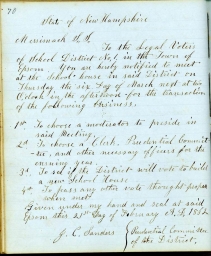 70
State of New Hampshire
Merrimack SS.
To the Legal Voters
of School District No 1, in the Town of
Epsom. You are hereby notified to meet
at the School house in said District on
Thursday the six day of March next at two
Oclock in the afternoon for the transaction
of the following business.
1st To choose a moderator to preside in
said Meeting.
2nd To choose a Clerk, Prudential Commit-
tee, and other necessary officers for the
ensuing year.
3d To see if the District will vote to build
a new School House.
4th To pass any other vote thought proper
when met.
Given under my hand and seal at said
Epsom this 21st Day of February A.D.
J. C. Sanders
Prudential Committee
of this District.